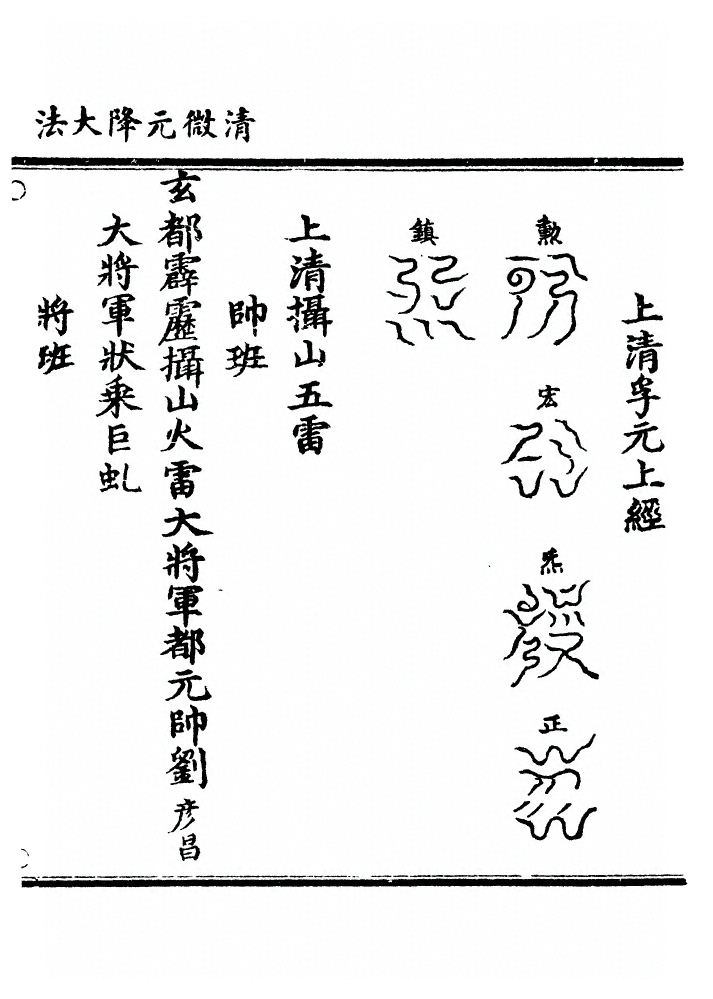 清微元降大法
上清孚元上經
勲
宏
炁
正
鎮
上清攝山五雷
帥班
玄都霹靂攝山火雷大將軍都元帥劉彦昌
大將軍狀乘巨虬
將班